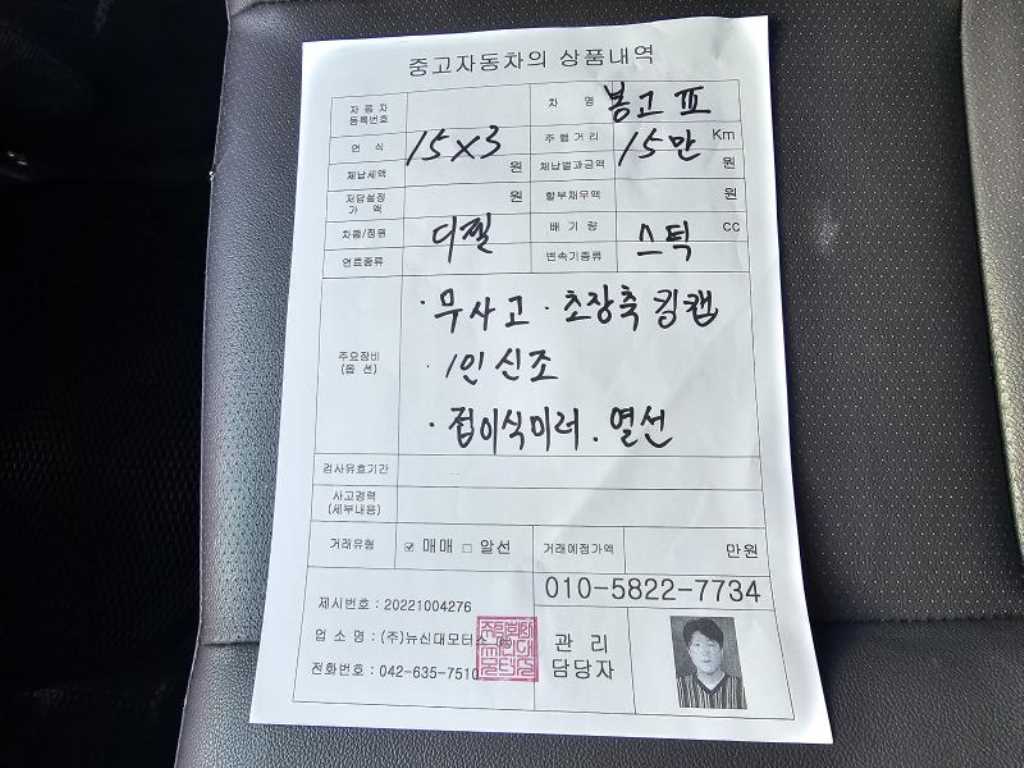 중고자동차의 상품내역
자동차 등록번호
차 명 봉고 Ⅲ
연 식 15x3
주행거리 15만 Km
체납세액 원
체납범과금액 원
저당설정 가 액 원
할부채무액 원
차종/정원 디젤
배 기 량 스틱 CC
연료종류
변속기종류
주요장비 (옵 션)
· 무사고 · 초장축 킹캡
· 1인 신조
· 접이식미러 . 열선
검사유효기간
사고경력 (세부내용)
거래유형 ☑ 매매 □ 알선
거래예정가액 만원
010-5822-7734
제시번호 : 20221004276
업 소 명 : (주)뉴신대모터스
전화번호 : 042-635-7510
관 리
담당자